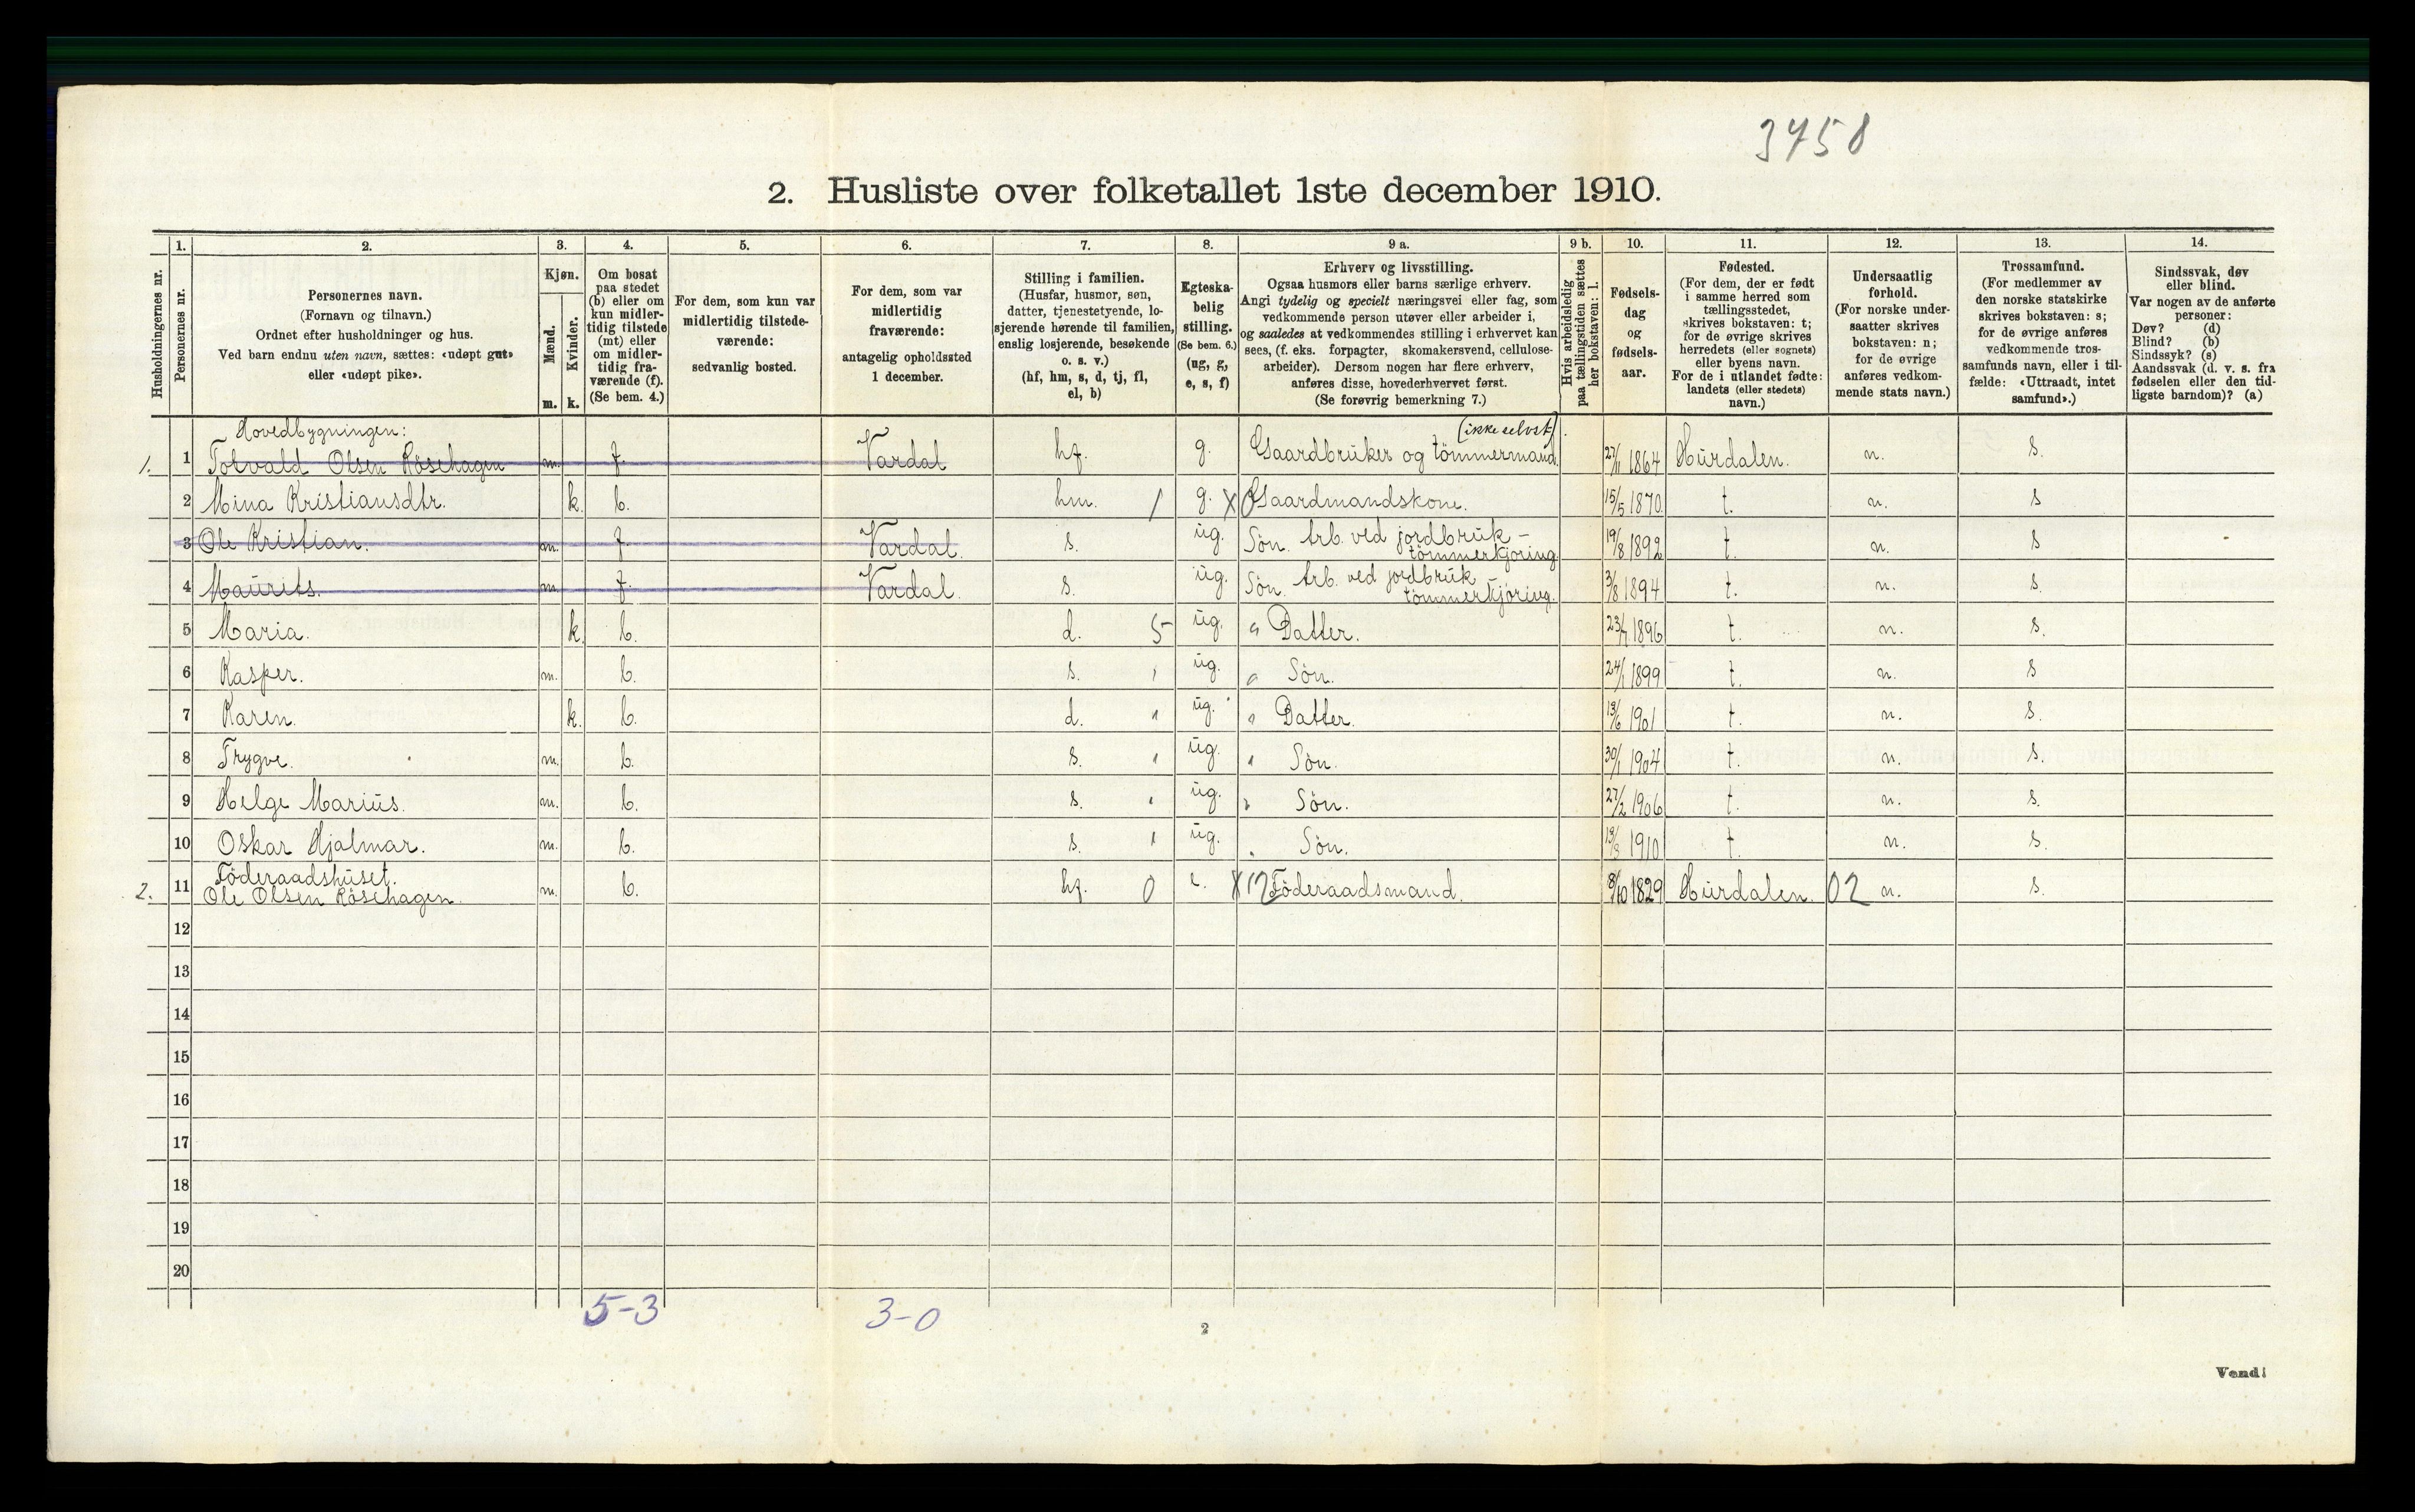 3758
2. Husliste over folketallet 1ste december 1910.
Husholdningernes nr.
1. Personernes nr.
2. Personernes navn.
(Fornavn og tilnavn.)
Ordnet efter husholdninger og hus.
Ved barn endnu uten navn, sættes: «udøpt gut»
eller «udøpt pike».
3. Kjøn.
Mænd. m.
Kvinder. k.
4. Om bosat
paa stedet
(b) eller om
kun midler-
tidig tilstede
(mt) eller
om midler-
tidig fra-
værende (f).
(Se bem. 4.)
5. For dem, som kun var
midlertidig tilstede-
værende:
sedvanlig bosted.
6. For dem, som var
midlertidig
fraværende:
antagelig opholdssted
1 december.
7. Stilling i familien.
(Husfar, husmor, søn,
datter, tjenestetyende, lo-
sjerende hørende til familien,
enslig losjerende, besøkende
o. s. v.)
(hf, hm, s, d, tj, fl,
el, b)
8. Egteska-
belig
stilling.
(Se bem. 6.)
(ug, g,
e, s, f)
9 a. Erhverv og livsstilling.
Ogsaa husmors eller barns særlige erhverv.
Angi tydelig og specielt næringsvei eller fag, som
vedkommende person utøver eller arbeider i,
og saaledes at vedkommendes stilling i erhvervet kan
sees, (f. eks. forpagter, skomakersvend, cellulose-
arbeider). Dersom nogen har flere erhverv,
anføres disse, hovederhvervet først.
(Se forøvrig bemerkning 7.)
9 b. Hvis arbeidsledig
paa tællingstiden sættes
her bokstaven: l.
10. Fødsels-
dag
og
fødsels-
aar.
11. Fødested.
(For dem, der er født
i samme herred som
tællingsstedet,
skrives bokstaven: t;
for de øvrige skrives
herredets (eller sognets)
eller byens navn.
For de i utlandet fødte:
landets (eller stedets)
navn.)
12. Undersaatlig
forhold.
(For norske under-
saatter skrives
bokstaven: n;
for de øvrige
anføres vedkom-
mende stats navn.)
13. Trossamfund.
(For medlemmer av
den norske statskirke
skrives bokstaven: s;
for de øvrige anføres
vedkommende tros-
samfunds navn, eller i til-
fælde: «Uttraadt, intet
samfund».)
14. Sindssvak, døv
eller blind.
Var nogen av de anførte
personer:
Døv? (d)
Blind? (b)
Sindssyk? (s)
Aandssvak (d. v. s. fra
fødselen eller den tid-
ligste barndom)? (a)
Hovedbygningen: (ikke selvst)
1. 1 Torvald Olsen Röisehagen m. f. Vardal hf. g. Gaardbruker og tömmermand. 27/11 1864 Hurdalen. n. s.
2 Mina Kristiansdtr. k. b. hm. 1 g. X Gaardmandskone. 15/5 1870 t. n. s
3 Ole Kristian. m. f. Vardal. s. ug. Sön. Arb. ved jordbruk -
tömmerkjöring. 19/8 1892 t. n. s
4 Maurits. m. f. Vardal. s. ug. Sön. Arb. ved jordbruk
tömmerkjöring. 3/8 1894 t. n. s.
5 Maria. k. b. d. 5 ug. " Datter. 1896 t. n. s.
6 Kasper. m. b. s. " ug. " Sön. 24/1 1899 t. n. s
7 Karen. k. b. d. " ug. " Datter. 13/6 1901 t. n. s.
8 Trygve. m. b. s. " ug. " Sön. 30/1 1904 t. n. s.
9 Helge Marius. m. b. s. " ug. " Sön. 27/2 1906 t. n. s.
10 Oskar Hjalmar. m. b. s. " ug. " Sön. 1910 t. n. s.
Föderaadshuset.
2. 11 Ole Olsen Röisehagen. m. b. hf. 0 e. X 12 Föderaadsmand. 8/10 1829 Hurdalen. 02 n. s.
12
13
14
15
16
17
18
19
20
5-3 3-0
2
Vend!